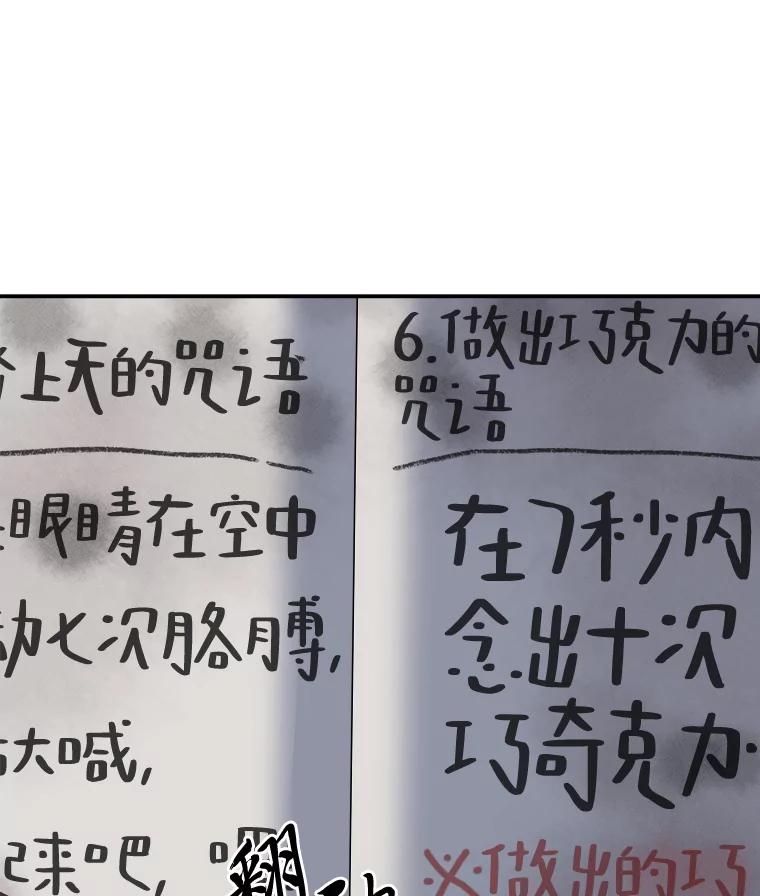 上天的咒语
眼睛在空中
动七次胳膊,
大喊,
来吧,
6.做出巧克力的
咒语
在7秒内
念出十次
巧奇克力.
※做出的巧
翻